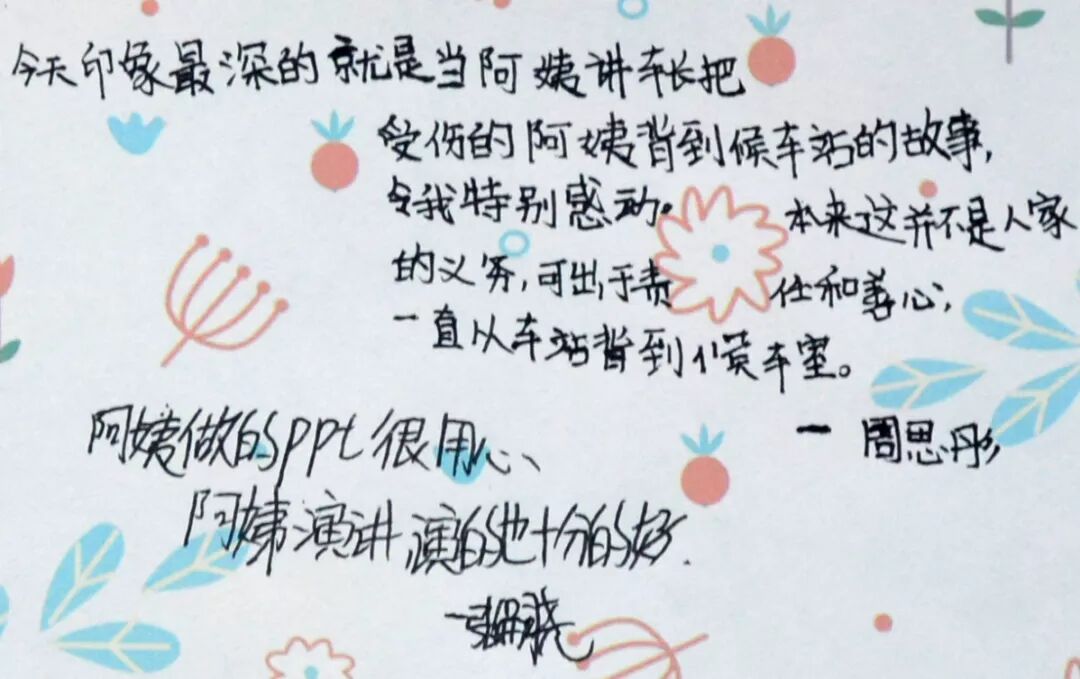 今天印象最深的就是当阿姨讲车长把
受伤的阿姨背到候车站的故事,
令我特别感动。本来这并不是人家
的义务,可出于责任和善心,
一直从车站背到候车室。
一 周思彤
阿姨做的ppt很用心、
阿姨演讲,演的也十分的好.